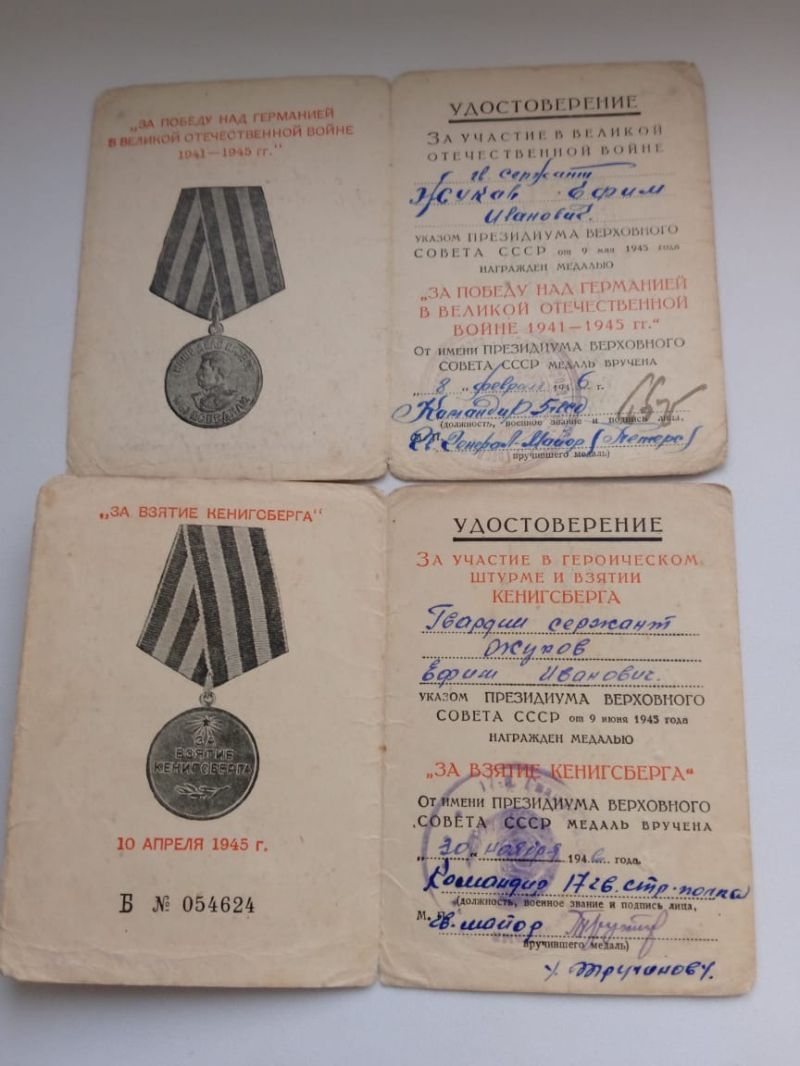 „ЗА ПОБЕДУ НАД ГЕРМАНИЕЙ
В ВЕЛИКОЙ ОТЕЧЕСТВЕННОЙ ВОЙНЕ
1941—1945 гг."
НАШЕ ДЕЛО ПРАВОЕ
МЫ ПОБЕДИЛИ
УДОСТОВЕРЕНИЕ
ЗА УЧАСТИЕ В ВЕЛИКОЙ
ОТЕЧЕСТВЕННОЙ ВОЙНЕ
гв. сержант
Ефим
Иванович.
УКАЗОМ ПРЕЗИДИУМА ВЕРХОВНОГО
СОВЕТА СССР от 9 мая 1945 года
НАГРАЖДЕН МЕДАЛЬЮ
„ЗА ПОБЕДУ НАД ГЕРМАНИЕЙ
В ВЕЛИКОЙ ОТЕЧЕСТВЕННОЙ
ВОЙНЕ 1941—1945 гг."
От имени ПРЕЗИДИУМА ВЕРХОВНОГО
СОВЕТА СССР МЕДАЛЬ ВРУЧЕНА
„8" февраля 1946 г.
Командир
(должность, военное звание и подпись лица,
Генерал-Майор (Петерс)
вручившего медаль)
„ЗА ВЗЯТИЕ КЕНИГСБЕРГА"
ЗА
ВЗЯТИЕ
КЕНИГСБЕРГА
10 АПРЕЛЯ 1945 г.
Б № 054624
УДОСТОВЕРЕНИЕ
ЗА УЧАСТИЕ В ГЕРОИЧЕСКОМ
ШТУРМЕ И ВЗЯТИИ
КЕНИГСБЕРГА
Гвардии сержант
Ефим Иванович.
УКАЗОМ ПРЕЗИДИУМА ВЕРХОВНОГО
СОВЕТА СССР от 9 июня 1945 года
НАГРАЖДЕН МЕДАЛЬЮ
„ЗА ВЗЯТИЕ КЕНИГСБЕРГА"
От имени ПРЕЗИДИУМА ВЕРХОВНОГО
СОВЕТА СССР МЕДАЛЬ ВРУЧЕНА
„30" ноября 194 года.
Командир 17 гв. стр. полка
(должность, военное звание и подпись лица,
М. П.
гв. майор
вручившего медаль)